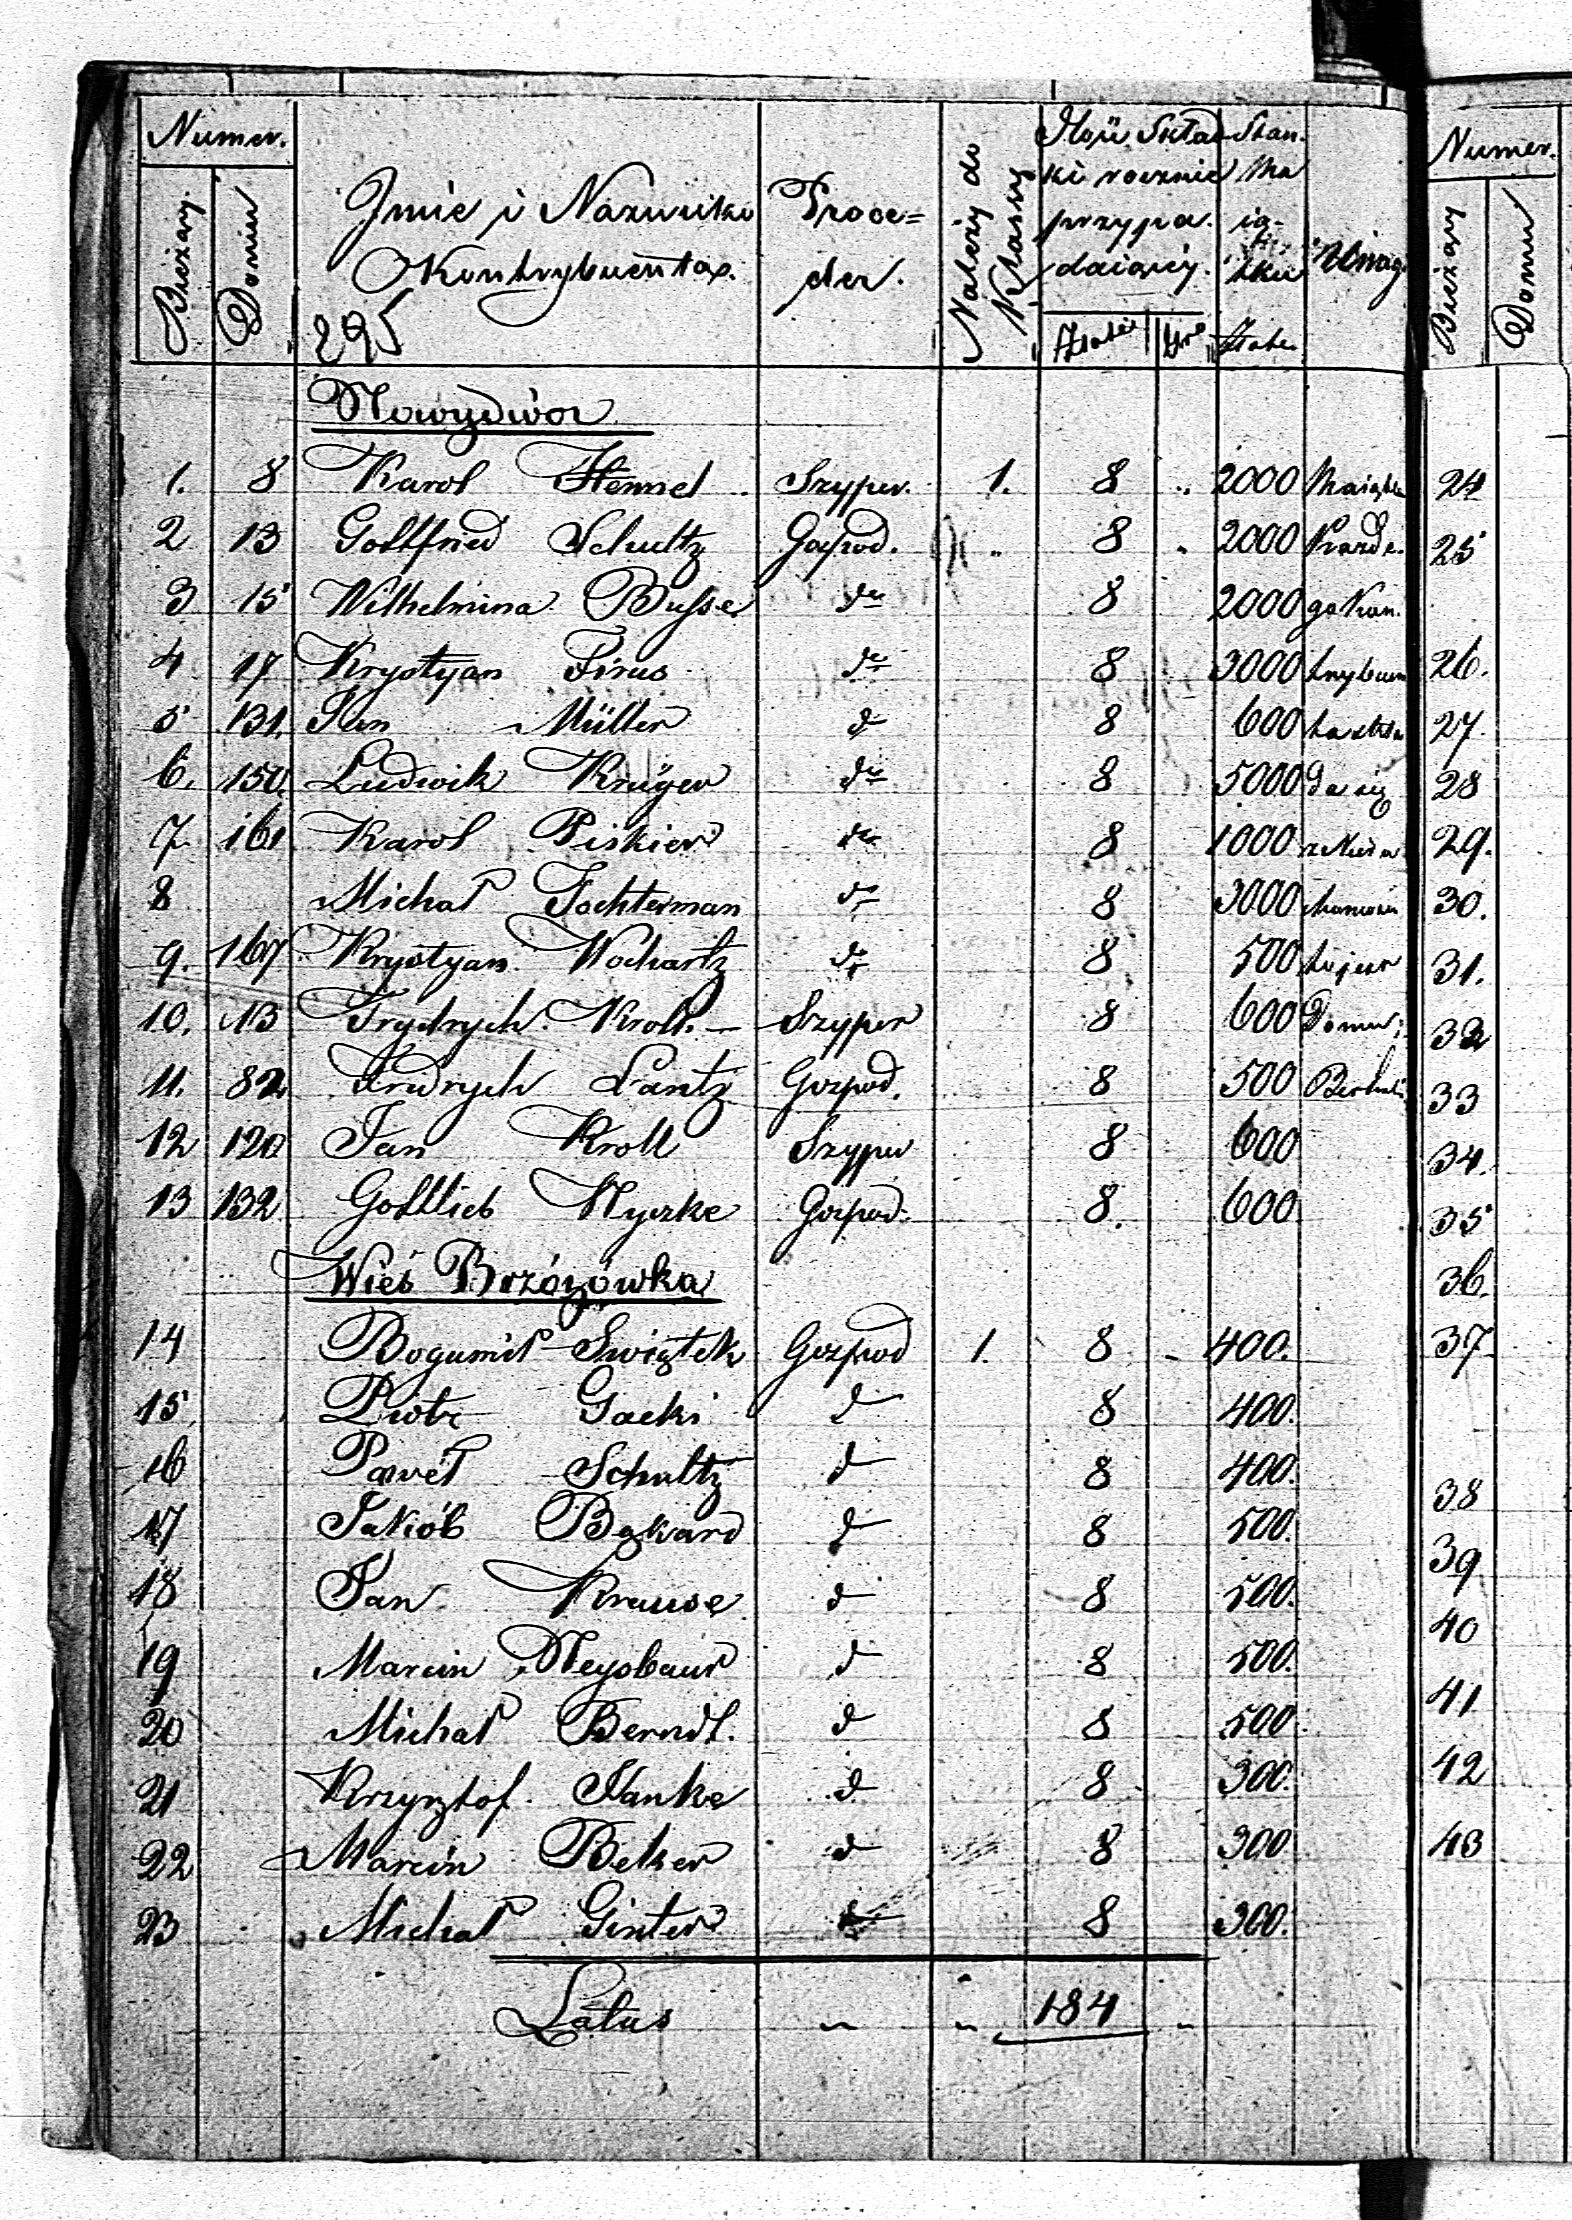 Numer.
Bieżący
Domu
Imie i Nazwisko
Kontrybuenta.
295
Proce=
der.
Należy do
Klassy
Ilość Skład
ki rocznie
przypa.
daiącey.
Złote
Gr.
Stan.
Ma
ią-
tku
Złote
Uwag
Nowydwór
1. 8 Karol Hemmel Szyper. 1. 8 2000 Maiątku
2 13 Gottfried Schultz Gospod. 8 2000 Każde.
3 15 Wilhelmina Busse do 8 2000 go Kon.
4 17 Krystyan Pirus do 8 3000 trybuen
5 131. Jan Müller d 8 600
6. 150. Ludwik Krüger do 8 5000
7. 161 Karol Piskier do 8 1000
8 Michał Jochterman do 8 3000
9. 167 Krystyan Wochartz do 8 500
10. 13 Frydrych Kroll. Szyper 8 600 Domu
11. 82 Frydrych Lantz Gospod. 8 500
12 120 Jan Kroll Szyper 8 600
13 132 Gottlieb Nyczke Gospod. 8. 600
Wieś Brzozówka
14 Bogumił Swiątek Gospod 1. 8 400.
15 Piotr Gacki d 8 400.
16 Paweł Schultz d 8 400.
17 Jakób Bekard d 8 500.
18 Jan Krause d 8 500.
19 Marcin Neysbaur d 8 500.
20 Michał Berndt. d 8 500.
21 Krzysztof Janke d 8 300.
22 Marcin Beker d 8 300
23 Michał Ginter d 8 300.
Latus 184
Numer.
Bieżący
Domu
24
25
26.
27.
28
29.
30.
31.
32
33
34.
35
36.
37
38
39
40
41
42
43